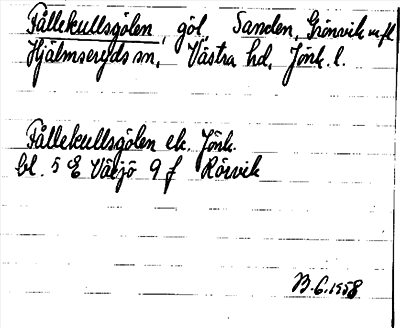 Fållekullsgölen, göl, Sanden, Grönvik m fl
Hjälmseryds sn, Västra hd, Jönk. l.
Fållekullsgölen ek. Jönk.
bl. 5 E Växjö 9 f Rörvik
B.G. 1958